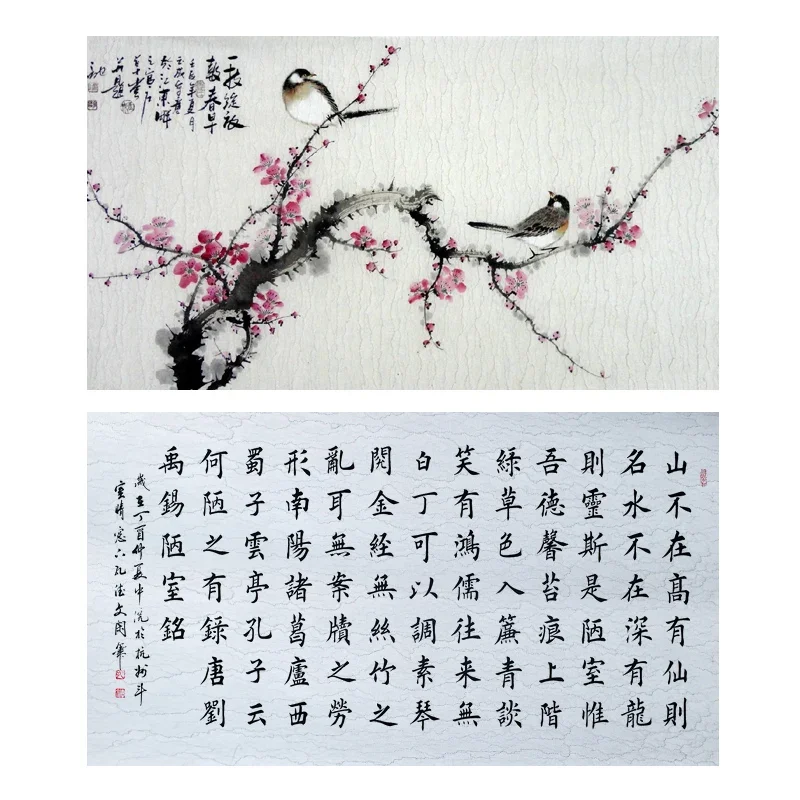 一枝綻放
春早
山不在高有仙則
名水不在深有龍
則靈斯是陋室惟
吾德馨苔痕上階
綠草色入簾青談
笑有鴻儒往来無
白丁可以調素琴
閱金經無絲竹之
亂耳無案牘之勞
形南陽諸葛廬西
蜀子雲亭孔子云
何陋之有録唐劉
禹錫陋室銘
歲在丁酉仲夏中浣於杭州斗
室晴窓